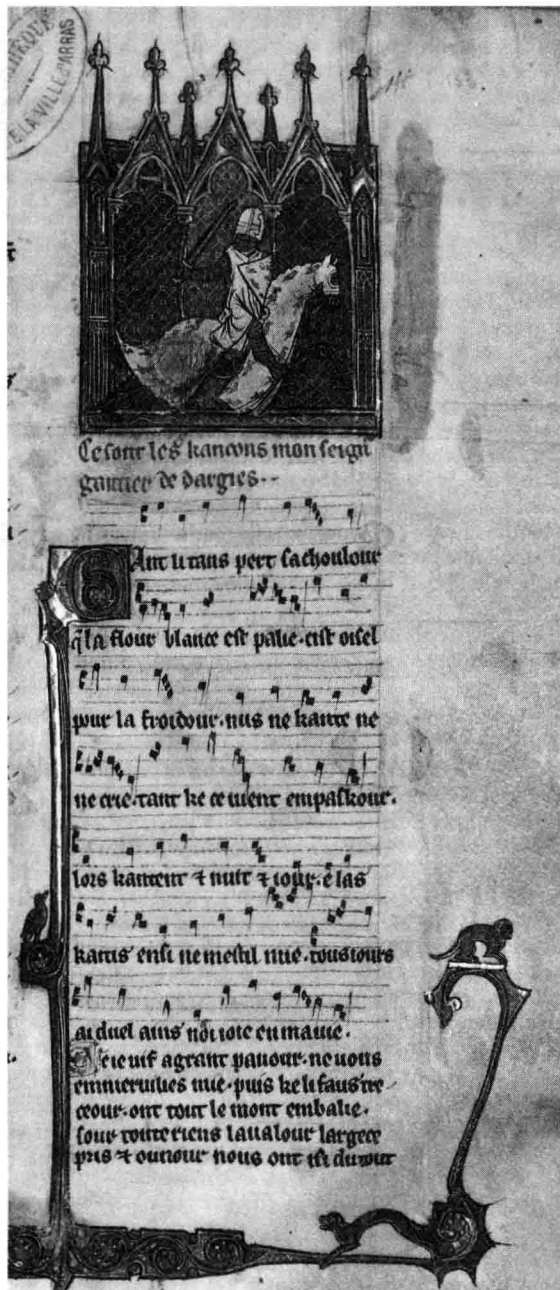 DE LA VILLE D'ARRAS
Ce sont les kancons mon seign̄
gautier de dargies..
Ant li tans pert sa choulour
q̃ la flour blance est palie. cist oisel
pour la froidour. nus ne kante ne
ne crie. tant ke ce uient em paskour.
lors kantent ⁊ nuit ⁊ iour. e las
kaitis ensi ne mest il mie. tous iours
ai duel ains noi ioie en ma uie.
ne uous
mie. puis ke li faus tre
ceour. ont tout le mont embalie.
sour toute riens la ualour largece
pris ⁊ ounour nous ont du tout